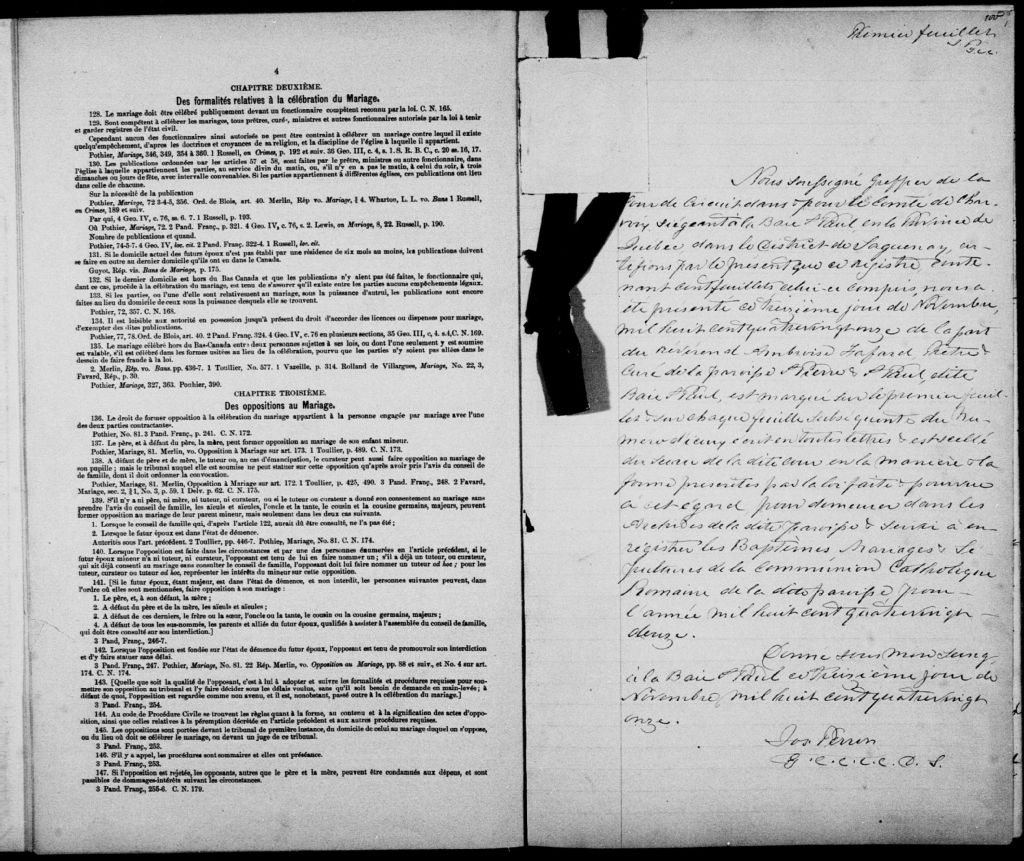 4
CHAPITRE DEUXIÈME.
Des formalités relatives à la célébration du Mariage.
128. Le mariage doit être célébré publiquement devant un fonctionnaire compétent reconnu par la loi. C. N. 165.
129. Sont compétents à célébrer les mariages, tous prêtres, curés, ministres et autres fonctionnaires autorisés par la loi à tenir
et garder registres de l'état civil.
Cependant aucun des fonctionnaires ainsi autorisés ne peut être contraint à célébrer un mariage contre lequel il existe
quelqu'empêchement, d'après les doctrines et croyances de sa religion, et la discipline de l'église à laquelle il appartient.
Pothier, Mariage, 346, 349, 354 à 360. 1 Russell, on Crimes, p. 192 et suiv. 36 Geo. III, c. 4, s. 1. S. R. B. C., c. 20 ss. 16, 17.
130. Les publications ordonnées par les articles 57 et 58, sont faites par le prêtre, ministre ou autre fonctionnaire, dans
l'église à laquelle appartiennent les parties, au service divin du matin, ou, s'il n'y en a pas le matin, à celui du soir, à trois
dimanches ou jours de fête, avec intervalle convenables. Si les parties appartiennent à différentes églises, ces publications ont lieu
dans celle de chacune.
Sur la nécessité de la publication
Pothier, Mariage, 72 3-4-5, 356. Ord. de Blois, art. 40. Merlin, Rép vo. Mariage, § 4. Wharton, L. L. vo. Bans 1 Russell,
on Crimes, 189 et suiv.
Par qui, 4 Geo. IV, c. 76, ss. 6. 7. 1 Russell, p. 193.
Où Pothier, Mariage, 72. 2 Pand. Franç., p. 321. 4 Geo. IV, c. 76, s. 2. Lewis, on Mariage, 8, 22. Russell, p. 190.
Nombre de publications et quand.
Pothier, 74-5-7. 4 Geo. IV, loc. cit. 2 Pand. Franç. 322-4. 1 Russell, loc. cit.
131. Si le domicile actuel des futurs époux n'est pas établi par une résidence de six mois au moins, les publications doivent
se faire en outre au dernier domicile qu'ils ont eu dans le Canada.
Guyot, Rép. vis. Bans de Mariage, p. 175.
132. Si le dernier domicile est hors du Bas Canada et que les publications n'y aient pas été faites, le fonctionnaire qui,
dans ce cas, procède à la célébration du mariage, est tenu de s'assurer qu'il existe entre les parties aucuns empêchements légaux.
133. Si les parties, ou l'une d'elle sont relativement au mariage, sous la puissance d'autrui, les publications sont encore
faites au lieu du domicile de ceux sous la puissance desquels elle se trouvent.
Pothier, 72, 357. C. N. 168.
134. Il est loisible aux autorité en possession jusqu'à présent du droit d'accorder des licences ou dispenses pour mariage,
d'exempter des dites publications.
Pothier, 77, 78. Ord. de Blois, art. 40. 2 Pand. Franç. 324, 4 Geo. IV, c. 76 en plusieurs sections, 35 Geo. III, c, 4. s.4,C. N. 169.
135. Le mariage célébré hors du Bas-Canada entre deux personnes sujettes à ses lois, ou dont l'une seulement y est soumise
est valable, s'il est célébré dans les formes usitées au lieu de la célébration, pourvu que les parties n'y soient pas allées dans le
dessein de faire fraude à la loi.
2. Merlin, Rép. vo. Bans. pp. 436-7. 1 Toullier, No. 577. 1 Vazeille, p. 314. Rolland de Villargues, Mariage, No. 22, 3,
Favard, Rép., p. 30.
Pothier, Mariage, 327, 363. Pothier, 390.
CHAPITRE TROISIÈME.
Des oppositions au Mariage.
136. Le droit de former opposition à la célébration du mariage appartient à la personne engagée par mariage avec l'une
des deux parties contractantes.
Pothier, No. 81. 3 Pand. Franç., p. 241. C. N. 172.
137. Le père, et à défaut du père, la mère, peut former opposition au mariage de son enfant mineur.
Pothier, Mariage, 81. Merlin, vo. Opposition à Mariage sur art. 173. 1 Toullier, p. 489. C. N. 173.
138. A défaut de père et de mère, le tuteur ou, au cas d'émancipation, le curateur peut aussi faire opposition au mariage de
son pupille ; mais le tribunal auquel elle est soumise ne peut statuer sur cette opposition qu'après avoir pris l'avis du conseil de
famille, dont il doit ordonner la convocation.
Pothier, Mariage, 81. Merlin, Opposition à Mariage sur art. 172. 1 Toullier, p. 425, 490. 3 Pand. Franç., 248. 2 Favard,
Mariage, sec. 2, § 1, No. 3, p. 59. 1 Delv. p. 62. C. N. 175.
139. S'il n'y a ni père, ni mère, ni tuteur, ni curateur, ou si le tuteur ou curateur a donné son consentement au mariage sans
prendre l'avis du conseil de famille, les aïeuls et aïeules, l'oncle et la tante, le cousin et la cousine germains, majeurs, peuvent
former opposition au mariage de leur parent mineur, mais seulement dans les deux cas suivants.
1. Lorsque le conseil de famille qui, d'après l'article 122, aurait dû être consulté, ne l'a pas été ;
2. Lorsque le futur époux est dans l'état de démence.
Autorités sous l'art. précédent. 2 Toullier, pp. 446-7. Pothier, Mariage, No. 81. C. N. 174.
140. Lorsque l'opposition est faite dans les circonstances et par une des personnes énumérées en l'article précédent, si le
futur époux mineur n'a ni tuteur, ni curateur, l'opposant est tenu de lui en faire nommer un ; s'il a déjà un tuteur, ou curateur,
qui ait déjà consenti au mariage sans consulter le conseil de famille, l'opposant doit lui faire nommer un tuteur ad hoc ; pour les
tuteur, curateur ou tuteur ad hoc, représenter les intérêts du mineur sur cette opposition.
141. [Si le futur époux, étant majeur, est dans l'état de démence, et non interdit, les personnes suivantes peuvent, dans
l'ordre où elles sont mentionnées, faire opposition à son mariage :
1. Le père, et, à son défaut, la mère ;
2. A défaut du père et de la mère, les aïeuls et aïeules ;
3. A défaut de ces derniers, le frère ou la sœur, l'oncle ou la tante, le cousin ou la cousine germains, majeurs ;
4. A défaut de tous les sus-nommés, les parents et alliés du futur époux, qualifiés à assister à l'assemblée du conseil de famille,
qui doit être consulté sur son interdiction.]
3 Pand, Franç., 246-7.
142. Lorsque l'opposition est fondée sur l'état de démence du futur époux, l'opposant est tenu de promouvoir son interdiction
et d'y faire statuer sans délai.
3 Pand. Franç., 247. Pothier, Mariage, No. 81. 22 Rép. Merlin, vo. Opposition au Mariage, pp. 88 et suiv., et No. 4 sur art.
174. C. N. 174.
143. [Quelque que soit la qualité de l'opposant, c'est à lui à adopter et suivre les formalités et procédures requises pour sou-
mettre son opposition au tribunal et l'y faire décider sous les délais voulus, sans qu'il soit besoin de demande en main-levée ; à
défaut de quoi, l'opposition est regardée comme non avenu, et il est, nonobstant, passé outre à la célébration du mariage.]
3 Pand. Franç., 254.
144. Au code de Procédure Civile se trouvent les règles quant à la forme, au contenu et à la signification des actes d'oppo-
sition, ainsi que celles relatives à la péremption décrétée en l'article précédent et aux autres procédures requises.
145. Les oppositions sont portées devant le tribunal de première instance, du domicile de celui au mariage duquel on s'oppose,
ou du lieu où doit se célébrer le mariage, ou devant un juge de ce tribunal.
3 Pand. Franç., 253.
146. S'il y a appel, les procédures sont sommaires et elles ont préséance.
3 Pand. Franç., 253.
147. Si l'opposition est rejetée, les opposants, autres que le père et la mère, peuvent être condamnés aux dépens, et sont
passibles de dommages-intérêts suivant les circonstances.
3 Pand. Franç., 255-6. C. N. 179.
Premier feuillet
Nous soussigné Greffier de la
Cour de Circuit dans & pour le Comté de Char-
voix siégeant à la Baie St Paul en la Province de
Québec dans le District de Saguenay, cer-
tifions par le présent que ce registre conte-
nant cent feuillets celui-ci compris, nous a
été présenté ce treizième jour de Novembre,
mil huit cent quatrevingt onze de la part
du Révérend Ambroise Fafard Prêtre &
Curé de la paroisse St Pierre & St Paul, dite
Baie St Paul, est marqué sur le premier feuil-
let & sur chaque feuille subséquente du nu-
mero d'icuy écrit en toutes lettres & est scellé
du sceau de la dite cour en la manière & la
forme prescrites par la loi faite & pourvue
à cet égard pour demeurer dans les
Archives de la dite paroisse & servir à en-
régistrer les Baptêmes Mariages & Sé-
pultures de la Communion Catholique
Romaine de la dite paroisse pour
l'année mil huit cent quatrevingt
douze.
Donné sous mon seing
à la Baie St Paul ce treizième jour de
Novembre, mil huit cent quatrevingt
onze.
Jos Perron
G. C. C. C. C. D. S.